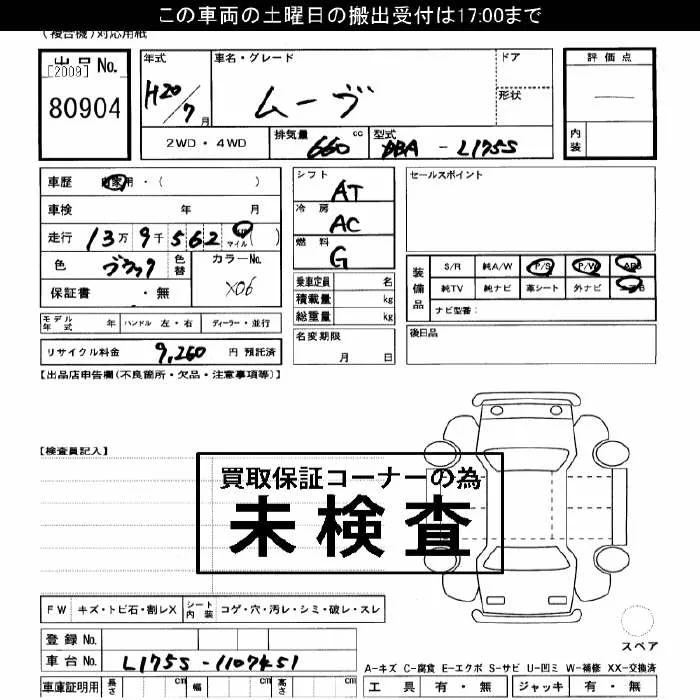 この車両の土曜日の搬出受付は17:00まで
(複合機)対応用紙
出品 No.
[2009]
80904
年式
H20/7 月
車名・グレード
ムーヴ
ドア
形状
評価点
—
内装
2WD・4WD
排気量 660 cc
型式 DBA - L175S
車歴 自家用・( )
車検 年 月
走行 13万 9千 562 マイル( )
色 ブラック 色替
カラーNo.
X06
保証書 ・ 無
モデル年式 年 ハンドル 左・右 ディーラー・並行
リサイクル料金 9,260 円 預託済
シフト AT
冷房 AC
燃料 G
乗車定員 名
積載量 kg
総重量 kg
名変期限
月 日
セールスポイント
装備品
S/R 純A/W P/S P/W ABS
純TV 純ナビ 革シート 外ナビ
ナビ型番:
後日品
【出品店申告欄(不良箇所・欠品・注意事項等)】
【検査員記入】
買取保証コーナーの為
未検査
FW キズ・トビ石・割レX シート内装 コゲ・穴・汚レ・シミ・破レ・スレ
登録 No.
車台 No. L175S-1107451
車庫証明用 長さ cm 幅 cm 高さ cm
スペア
A-キズ C-腐食 E-エクボ S-サビ U-凹ミ W-補修 XX-交換済
工具 有・無 ジャッキ 有・無